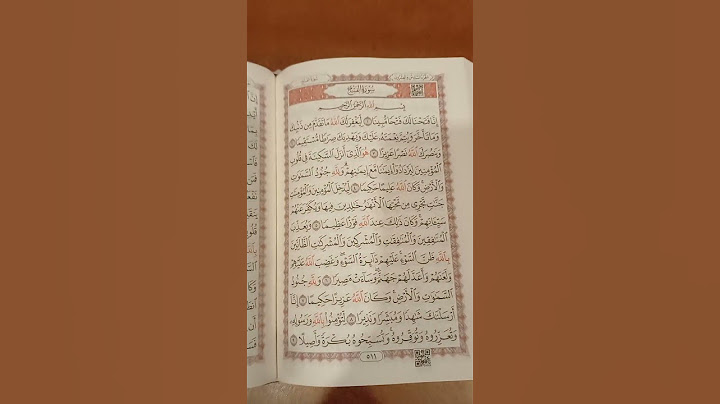 سُورَةُ الفَتْحِ
بِسْمِ اللَّهِ الرَّحْمَٰنِ الرَّحِيمِ
إِنَّا فَتَحْنَا لَكَ فَتْحًا مُّبِينًا ١ لِّيَغْفِرَ لَكَ اللَّهُ مَا تَقَدَّمَ مِن ذَنۢبِكَ
وَمَا تَأَخَّرَ وَيُتِمَّ نِعْمَتَهُۥ عَلَيْكَ وَيَهْدِيَكَ صِرَٰطًا مُّسْتَقِيمًا ٢
وَيَنصُرَكَ اللَّهُ نَصْرًا عَزِيزًا ٣ هُوَ الَّذِي أَنزَلَ السَّكِينَةَ فِي قُلُوبِ
الْمُؤْمِنِينَ لِيَزْدَادُوٓا إِيمَٰنًا مَّعَ إِيمَٰنِهِمْ وَلِلَّهِ جُنُودُ السَّمَٰوَٰتِ
وَالْأَرْضِ وَكَانَ اللَّهُ عَلِيمًا حَكِيمًا ٤ لِّيُدْخِلَ الْمُؤْمِنِينَ وَالْمُؤْمِنَٰتِ
جَنَّٰتٍ تَجْرِي مِن تَحْتِهَا الْأَنْهَٰرُ خَٰلِدِينَ فِيهَا وَيُكَفِّرَ عَنْهُمْ
سَيِّـَٔاتِهِمْ وَكَانَ ذَٰلِكَ عِندَ اللَّهِ فَوْزًا عَظِيمًا ٥ وَيُعَذِّبَ
الْمُنَٰفِقِينَ وَالْمُنَٰفِقَٰتِ وَالْمُشْرِكِينَ وَالْمُشْرِكَٰتِ الظَّآنِّينَ
بِاللَّهِ ظَنَّ السَّوْءِ عَلَيْهِمْ دَآئِرَةُ السَّوْءِ وَغَضِبَ اللَّهُ عَلَيْهِمْ
وَلَعَنَهُمْ وَأَعَدَّ لَهُمْ جَهَنَّمَ وَسَآءَتْ مَصِيرًا ٦ وَلِلَّهِ جُنُودُ
السَّمَٰوَٰتِ وَالْأَرْضِ وَكَانَ اللَّهُ عَزِيزًا حَكِيمًا ٧ إِنَّآ
أَرْسَلْنَٰكَ شَٰهِدًا وَمُبَشِّرًا وَنَذِيرًا ٨ لِّتُؤْمِنُوا بِاللَّهِ وَرَسُولِهِۦ
وَتُعَزِّرُوهُ وَتُوَقِّرُوهُ وَتُسَبِّحُوهُ بُكْرَةً وَأَصِيلًا ٩
٥١١